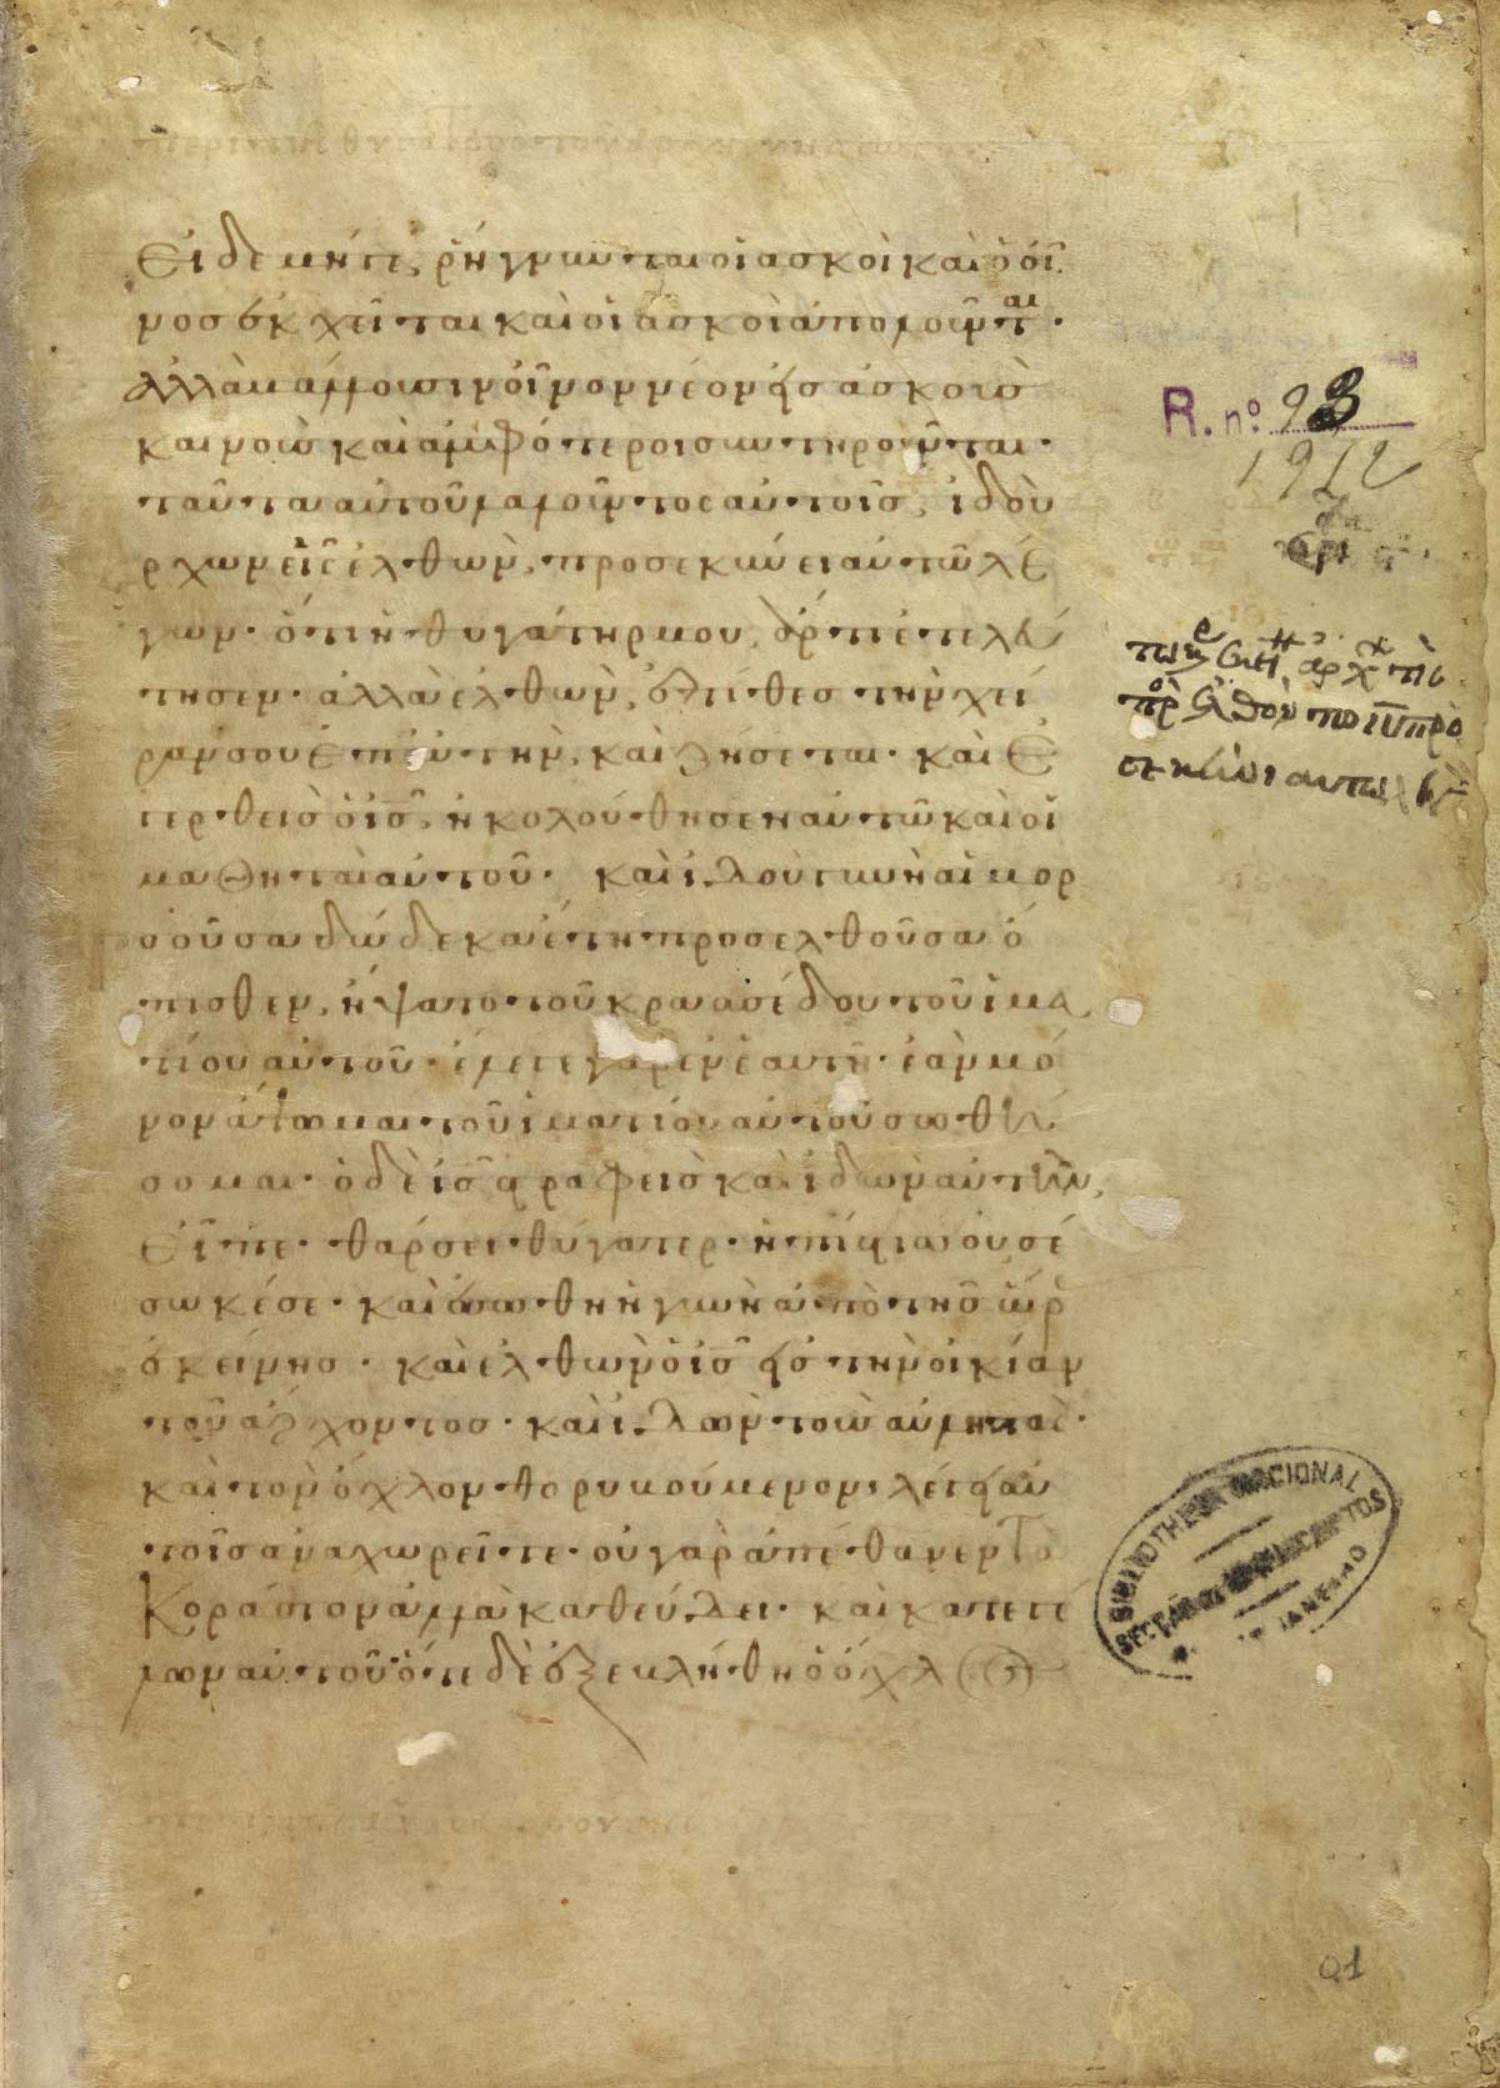 Εἰ δὲ μήγε, ῥήγνυνται οἱ ἀσκοὶ καὶ ὁ οἶ
νοσ ἐκχεῖται καὶ οἱ ἀσκοὶ ἀπολοῦνται·
ἀλλὰ βάλλουσιν οἶνον νέον εἰσ ἀσκοὺσ
καινοὺσ καὶ ἀμφότεροι συντηροῦνται·
ταῦτα αὐτοῦ λαλοῦντος αὐτοῖσ, ἰδοὺ
ἄρχων εἷς ἐλθὼν, προσεκύνει αὐτῶ λέ
γων· ὅτι ἡ θυγάτηρ μου, ἄρτι ἐτελεύ
τησεν· ἀλλὰ ἐλθὼν, ἐπίθεσ τὴν χεῖ
ρά σου ἐπ' αὐτὴν, καὶ ζήσεται· καὶ ἐ
γερθεὶσ ὁ ι̅σ̅, ἠκολούθησεν αὐτῶ καὶ οἱ
μαθηταὶ αὐτοῦ· καὶ ἰδοὺ γυνὴ αἱμορ
ροοῦσα δώδεκα ἔτη προσελθοῦσα ὄ
πισθεν, ἥψατο τοῦ κρασπέδου τοῦ ἱμα
τίου αὐτοῦ· ἔλεγε γὰρ ἐν ἑαυτῆ· ἐὰν μό
νον ἅψωμαι τοῦ ἱματίου αὐτοῦ σωθή
σομαι· ὁ δὲ ι̅σ̅ στραφεὶσ καὶ ἰδὼν αὐτὴν,
εἶπε· θάρσει θύγατερ· ἡ πίστισ σου σέ
σωκέ σε· καὶ ἐσώθη ἡ γυνὴ ἀπὸ τῆσ ὥρ
ἐκείνησ· καὶ ἐλθὼν ὁ ι̅σ̅ εἰσ τὴν οἰκίαν
τοῦ ἄρχοντοσ· καὶ ἰδὼν τοὺσ αὐλητὰσ·
καὶ τὸν ὄχλον θορυβούμενον, λέγει αὐ
τοῖσ ἀναχωρεῖτε· οὐ γὰρ ἀπέθανεν τὸ
Κοράσιον ἀλλὰ καθεύδει· καὶ κατεγέ
λων αὐτοῦ· ὅτε δὲ ἐξεβλήθη ὁ ὄχλοσ
R. nº 93
1912
BIBLIOTHECA NACIONAL
SECÇÃO DE MANUSCRIPTOS
RIO DE JANEIRO
01